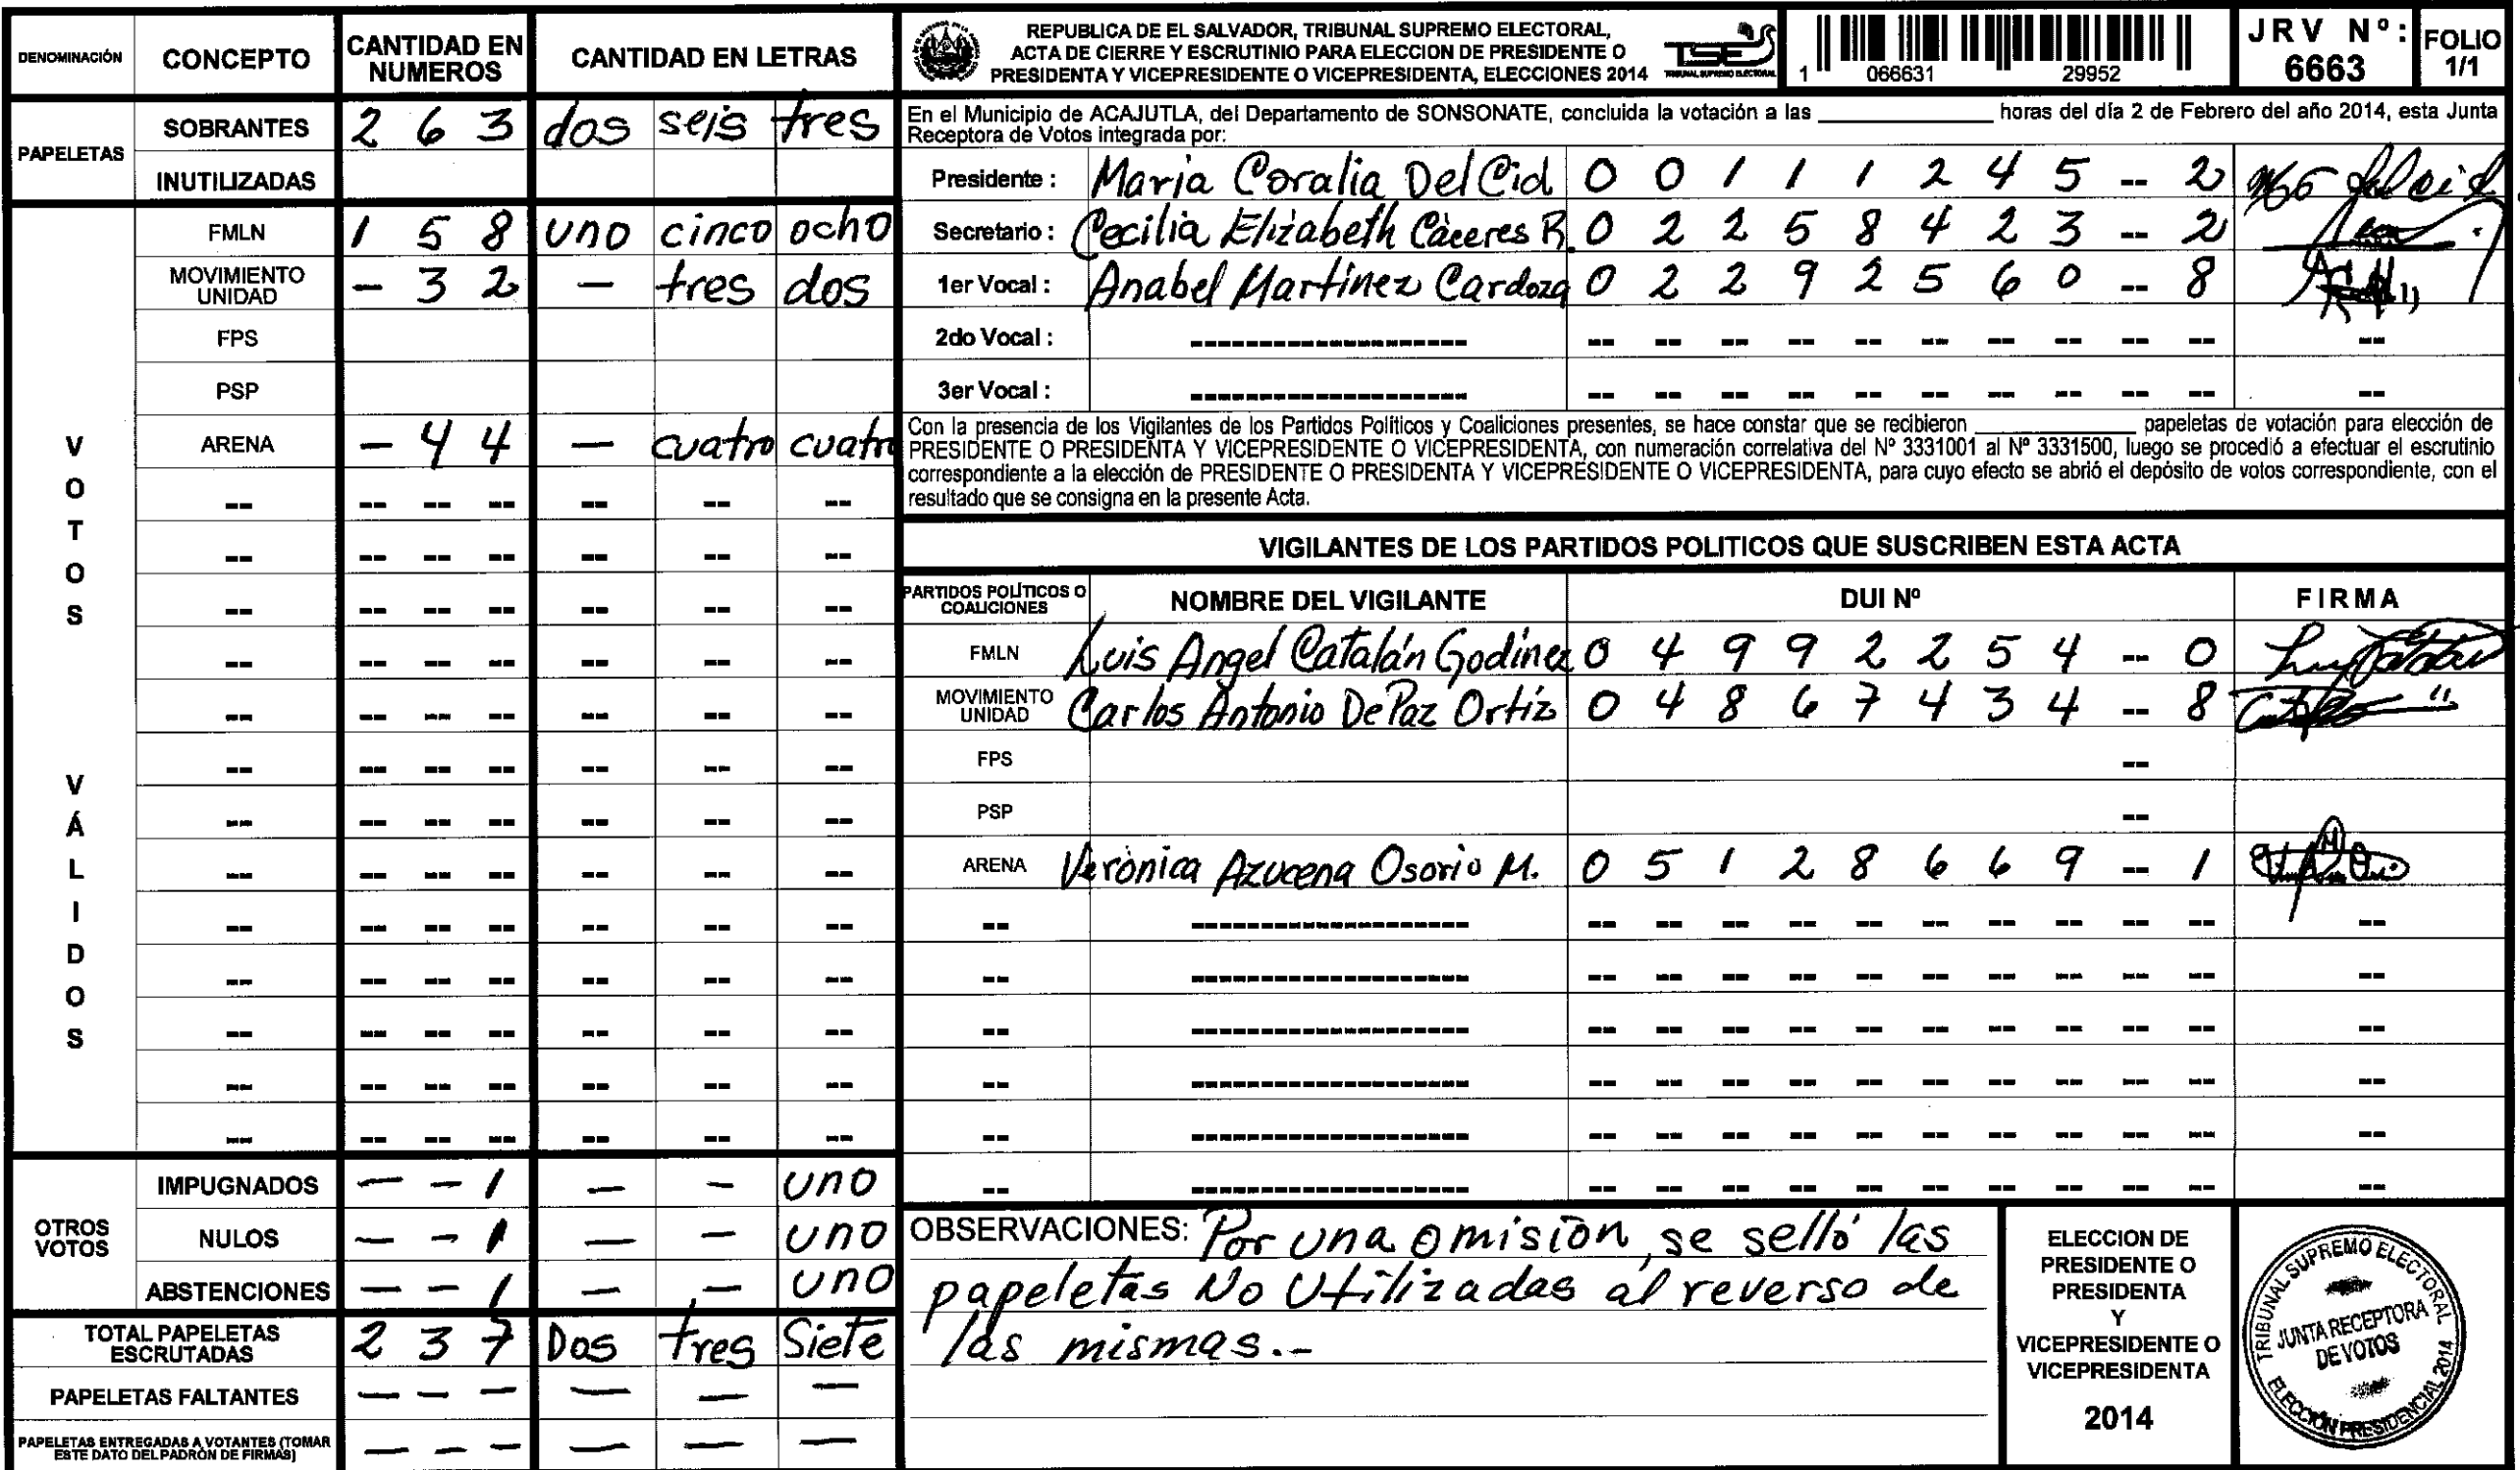 DENOMINACIÓN CONCEPTO CANTIDAD EN NUMEROS CANTIDAD EN LETRAS
PAPELETAS
SOBRANTES 2 6 3 dos seis tres
INUTILIZADAS
VOTOS VÁLIDOS
FMLN 1 5 8 uno cinco ocho
MOVIMIENTO UNIDAD - 3 2 - tres dos
FPS
PSP
ARENA - 4 4 - cuatro cuatro
-- -- -- -- -- -- --
-- -- -- -- -- -- --
-- -- -- -- -- -- --
-- -- -- -- -- -- --
-- -- -- -- -- -- --
-- -- -- -- -- -- --
-- -- -- -- -- -- --
-- -- -- -- -- -- --
-- -- -- -- -- -- --
-- -- -- -- -- -- --
-- -- -- -- -- -- --
-- -- -- -- -- -- --
-- -- -- -- -- -- --
OTROS VOTOS
IMPUGNADOS - - 1 - - uno
NULOS - - 1 - - uno
ABSTENCIONES - - 1 - - uno
TOTAL PAPELETAS ESCRUTADAS 2 3 7 Dos tres Siete
PAPELETAS FALTANTES - - - - - -
PAPELETAS ENTREGADAS A VOTANTES (TOMAR ESTE DATO DEL PADRÓN DE FIRMAS) - - - - - -
REPUBLICA DE EL SALVADOR, TRIBUNAL SUPREMO ELECTORAL,
ACTA DE CIERRE Y ESCRUTINIO PARA ELECCION DE PRESIDENTE O
PRESIDENTA Y VICEPRESIDENTE O VICEPRESIDENTA, ELECCIONES 2014
TSE
TRIBUNAL SUPREMO ELECTORAL
1 066631 29952
JRV Nº: 6663
FOLIO 1/1
En el Municipio de ACAJUTLA, del Departamento de SONSONATE, concluida la votación a las ____________ horas del día 2 de Febrero del año 2014, esta Junta
Receptora de Votos integrada por:
Presidente : Maria Coralia Del Cid 0 0 1 1 1 2 4 5 -- 2
Secretario : Cecilia Elizabeth Càceres R. 0 2 2 5 8 4 2 3 -- 2
1er Vocal : Anabel Martinez Cardoza 0 2 2 9 2 5 6 0 -- 8
2do Vocal : -------------------- -- -- -- -- -- -- -- -- -- -- --
3er Vocal : -------------------- -- -- -- -- -- -- -- -- -- -- --
Con la presencia de los Vigilantes de los Partidos Políticos y Coaliciones presentes, se hace constar que se recibieron ____________ papeletas de votación para elección de
PRESIDENTE O PRESIDENTA Y VICEPRESIDENTE O VICEPRESIDENTA, con numeración correlativa del Nº 3331001 al Nº 3331500, luego se procedió a efectuar el escrutinio
correspondiente a la elección de PRESIDENTE O PRESIDENTA Y VICEPRESIDENTE O VICEPRESIDENTA, para cuyo efecto se abrió el depósito de votos correspondiente, con el
resultado que se consigna en la presente Acta.
VIGILANTES DE LOS PARTIDOS POLITICOS QUE SUSCRIBEN ESTA ACTA
PARTIDOS POLÍTICOS O COALICIONES NOMBRE DEL VIGILANTE DUI Nº FIRMA
FMLN Luis Angel Catalán Godinez 0 4 9 9 2 2 5 4 -- 0
MOVIMIENTO UNIDAD Carlos Antonio De Paz Ortíz 0 4 8 6 7 4 3 4 -- 8
FPS --
PSP --
ARENA Verònica Azucena Osorio M. 0 5 1 2 8 6 6 9 -- 1
-- -------------------- -- -- -- -- -- -- -- -- -- -- --
-- -------------------- -- -- -- -- -- -- -- -- -- -- --
-- -------------------- -- -- -- -- -- -- -- -- -- -- --
-- -------------------- -- -- -- -- -- -- -- -- -- -- --
-- -------------------- -- -- -- -- -- -- -- -- -- -- --
-- -------------------- -- -- -- -- -- -- -- -- -- -- --
OBSERVACIONES: Por una omision, seselló las
papeletas No Utilizadas al reverso de
las mismas.-
ELECCION DE
PRESIDENTE O
PRESIDENTA
Y
VICEPRESIDENTE O
VICEPRESIDENTA
2014
TRIBUNAL SUPREMO ELECTORAL
JUNTA RECEPTORA
DE VOTOS
ELECCIÓN PRESIDENCIAL 2014